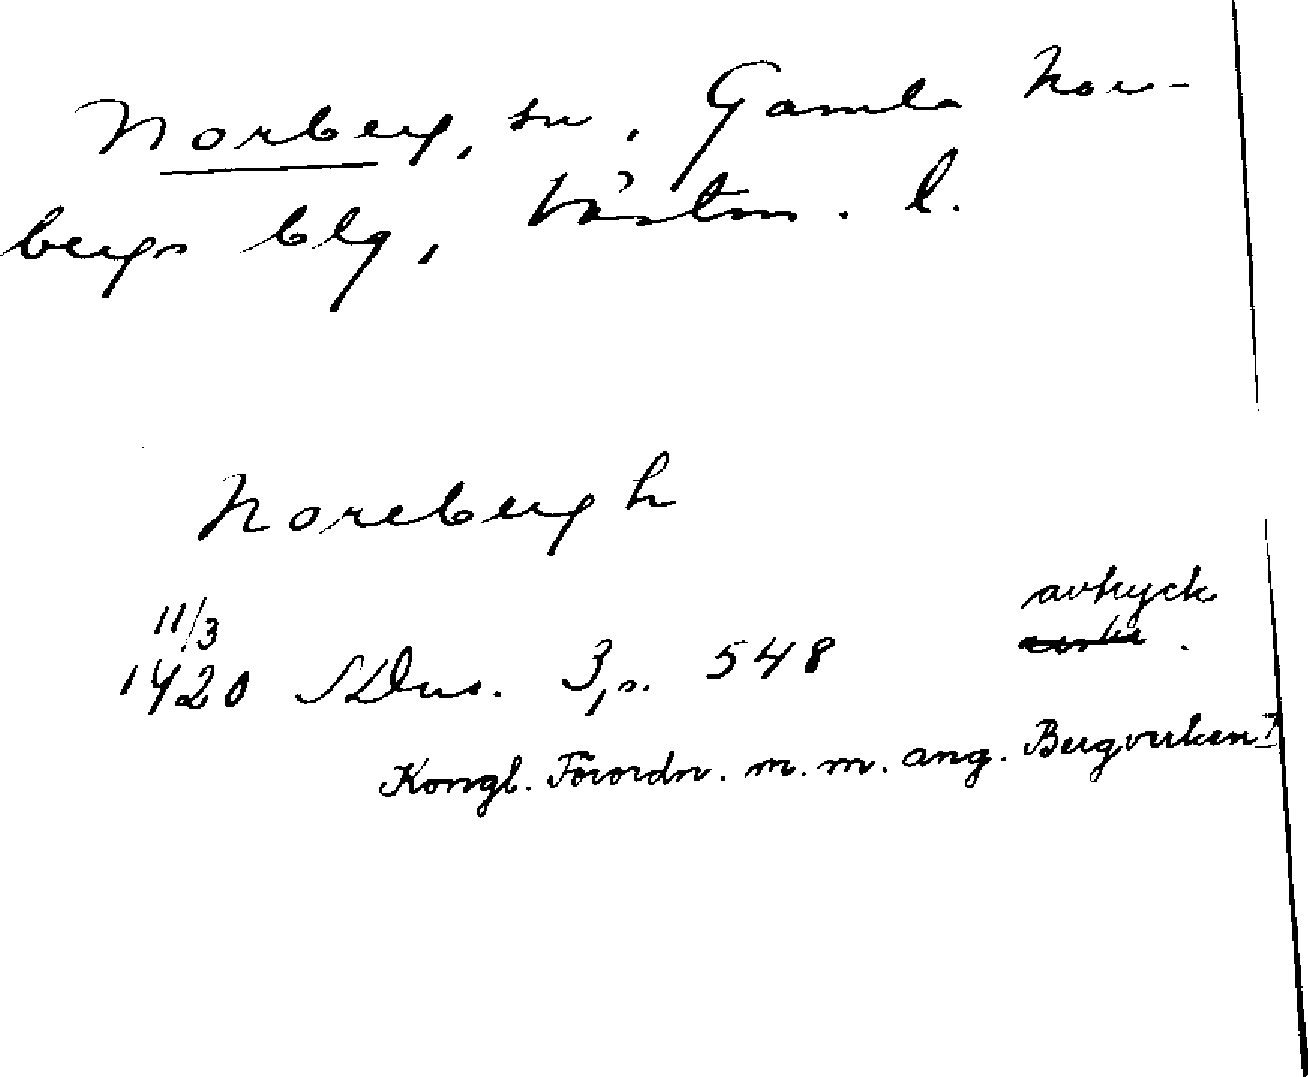 Norberg, sn, Gamla Nor-
bergs blg, Västm. l.
Norebergh
11/3
1420 SDns. 3, s. 548 avtryck
Kongl. Förordn. m. m. ang. Bergverken I